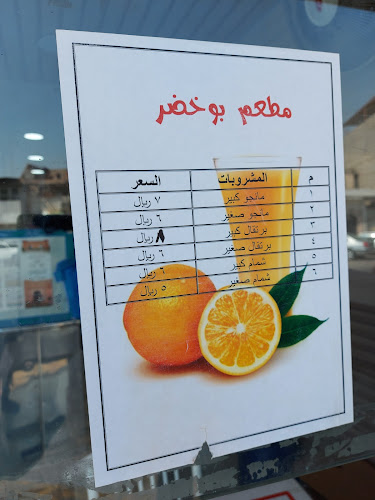 مطعم بوخضر
م المشروبات السعر
١ مانجو كبير ٧ ريال
٢ مانجو صغير ٦ ريال
٣ برتقال كبير ٨ ريال
٤ برتقال صغير ٦ ريال
٥ شمام كبير ٦ ريال
٦ شمام صغير ٥ ريال